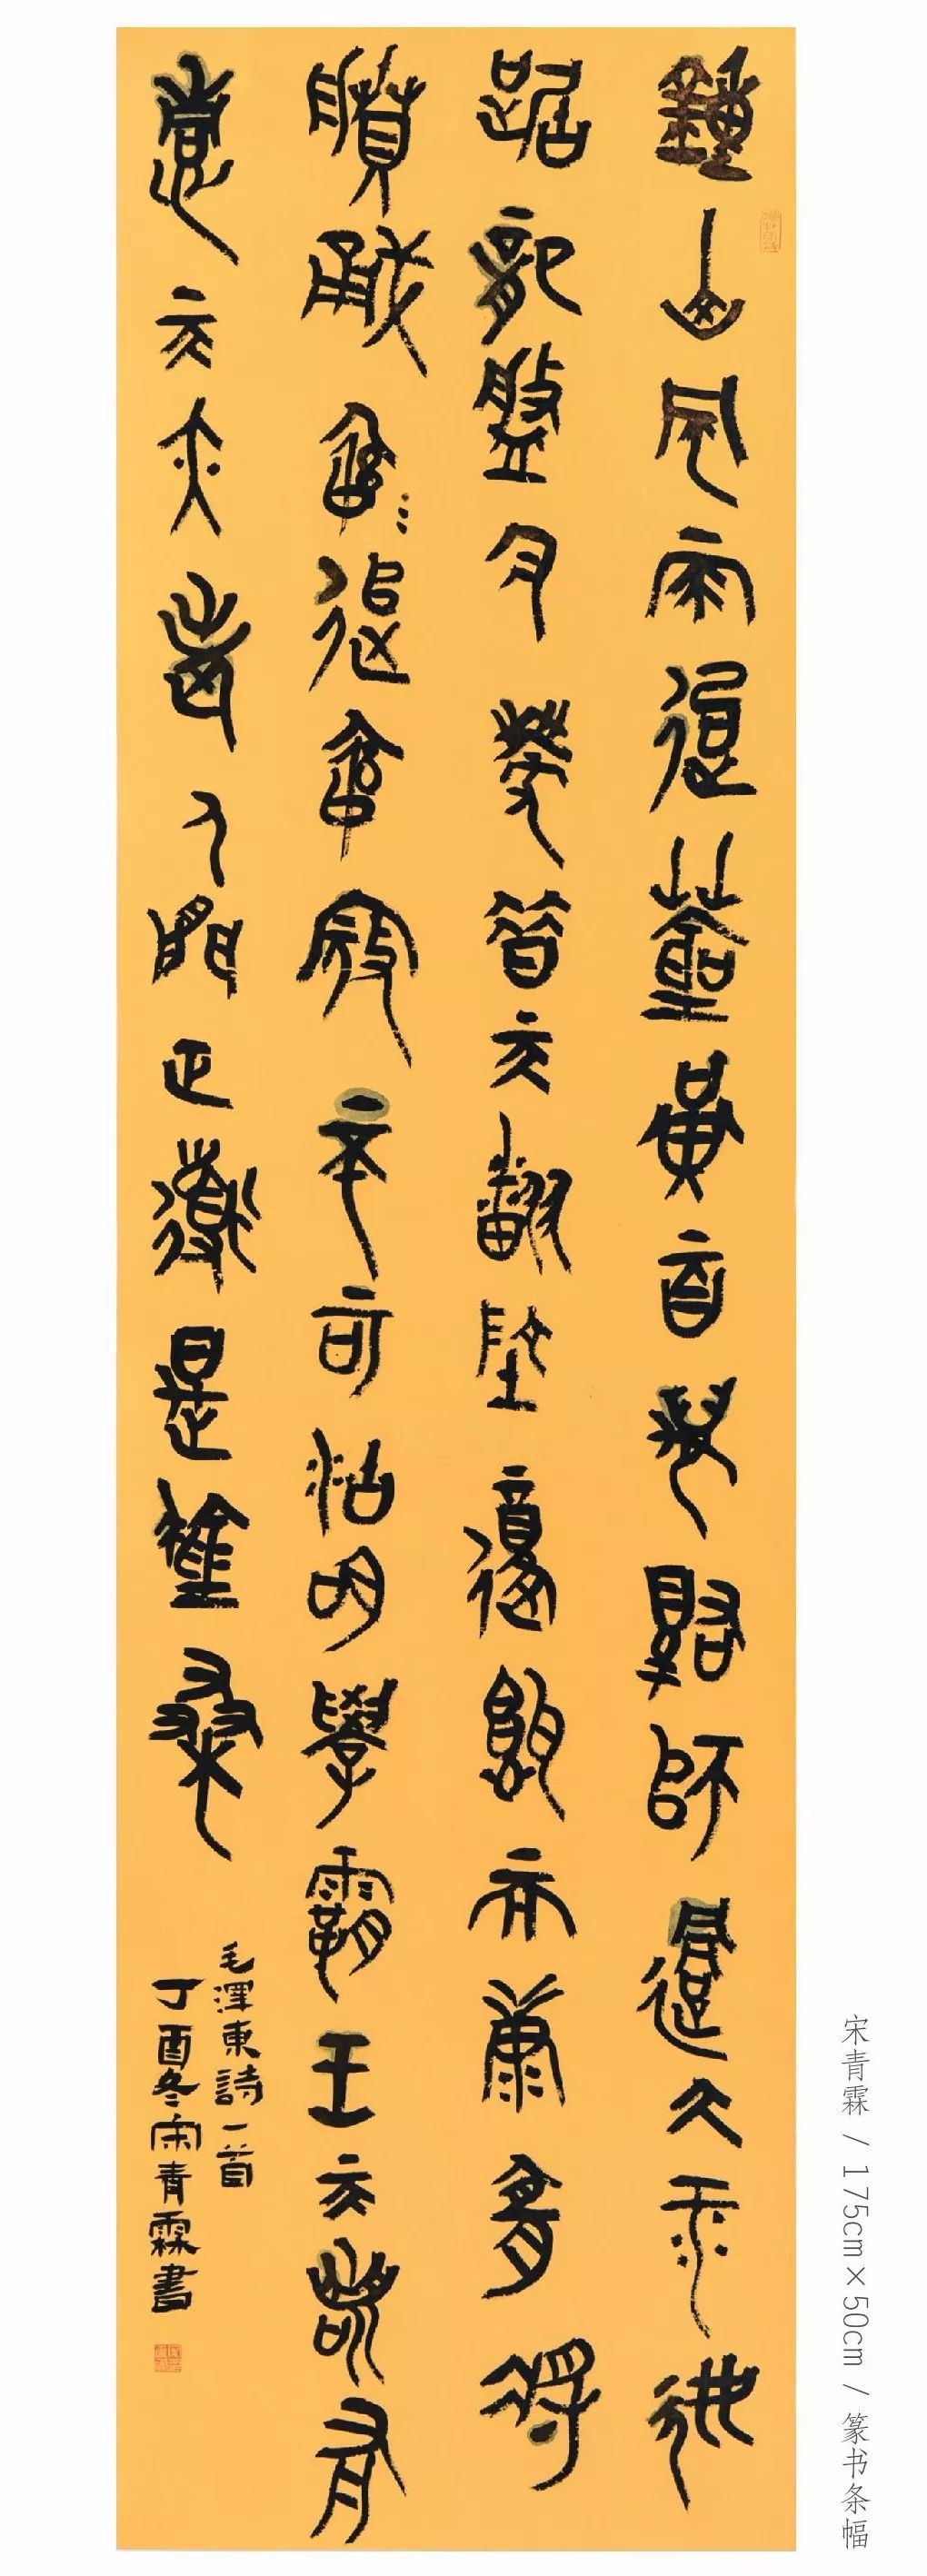 鍾山風雨起蒼黃百萬雄師過大江虎
踞龍盤今勝昔天翻地覆慨而慷宜將
賸勇追窮寇不可沽名學霸王天若有
情天亦老人間正道是滄桑
毛澤東詩一首
丁酉冬宋青霖書
宋青霖 / 175cm×50cm / 篆书条幅